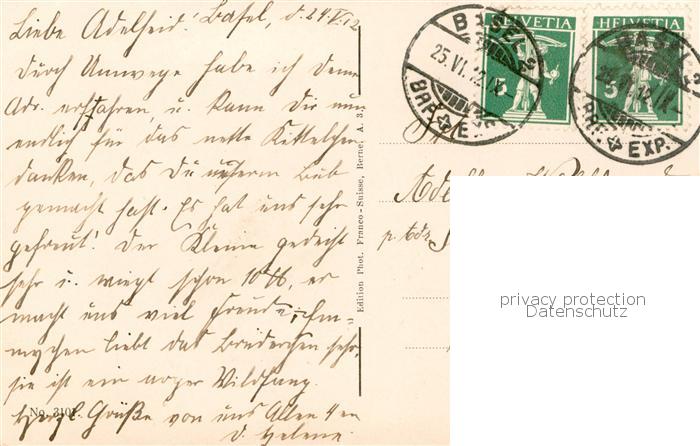 Liebe Adelheid! Basel, d. 24. VI. 12
Durch Umwege habe ich Deine
Adr. erfahren, u. kann Dir nun
endlich für das nette Kittelchen
danken, das Du unserm Bub
gemacht hast. Es hat uns sehr
gefreut! Der Kleine gedeiht
sehr u. wiegt schon 10 ℔, er
macht uns viel Freude; Em
mychen liebt das Brüderchen sehr,
sie ist ein arger Wildfang.
Herzl. Grüße von uns Allen 4en
d. Helene.
No. 3101
Edition Phot. Franco-Suisse, Berne, A. 3.
HELVETIA
5
HELVETIA
5
BASEL 2
25.VI.12.IX
BRF. EXP.
BASEL 2
25.VI.12.IX
BRF. EXP.
p. Adr.
privacy protection
Datenschutz